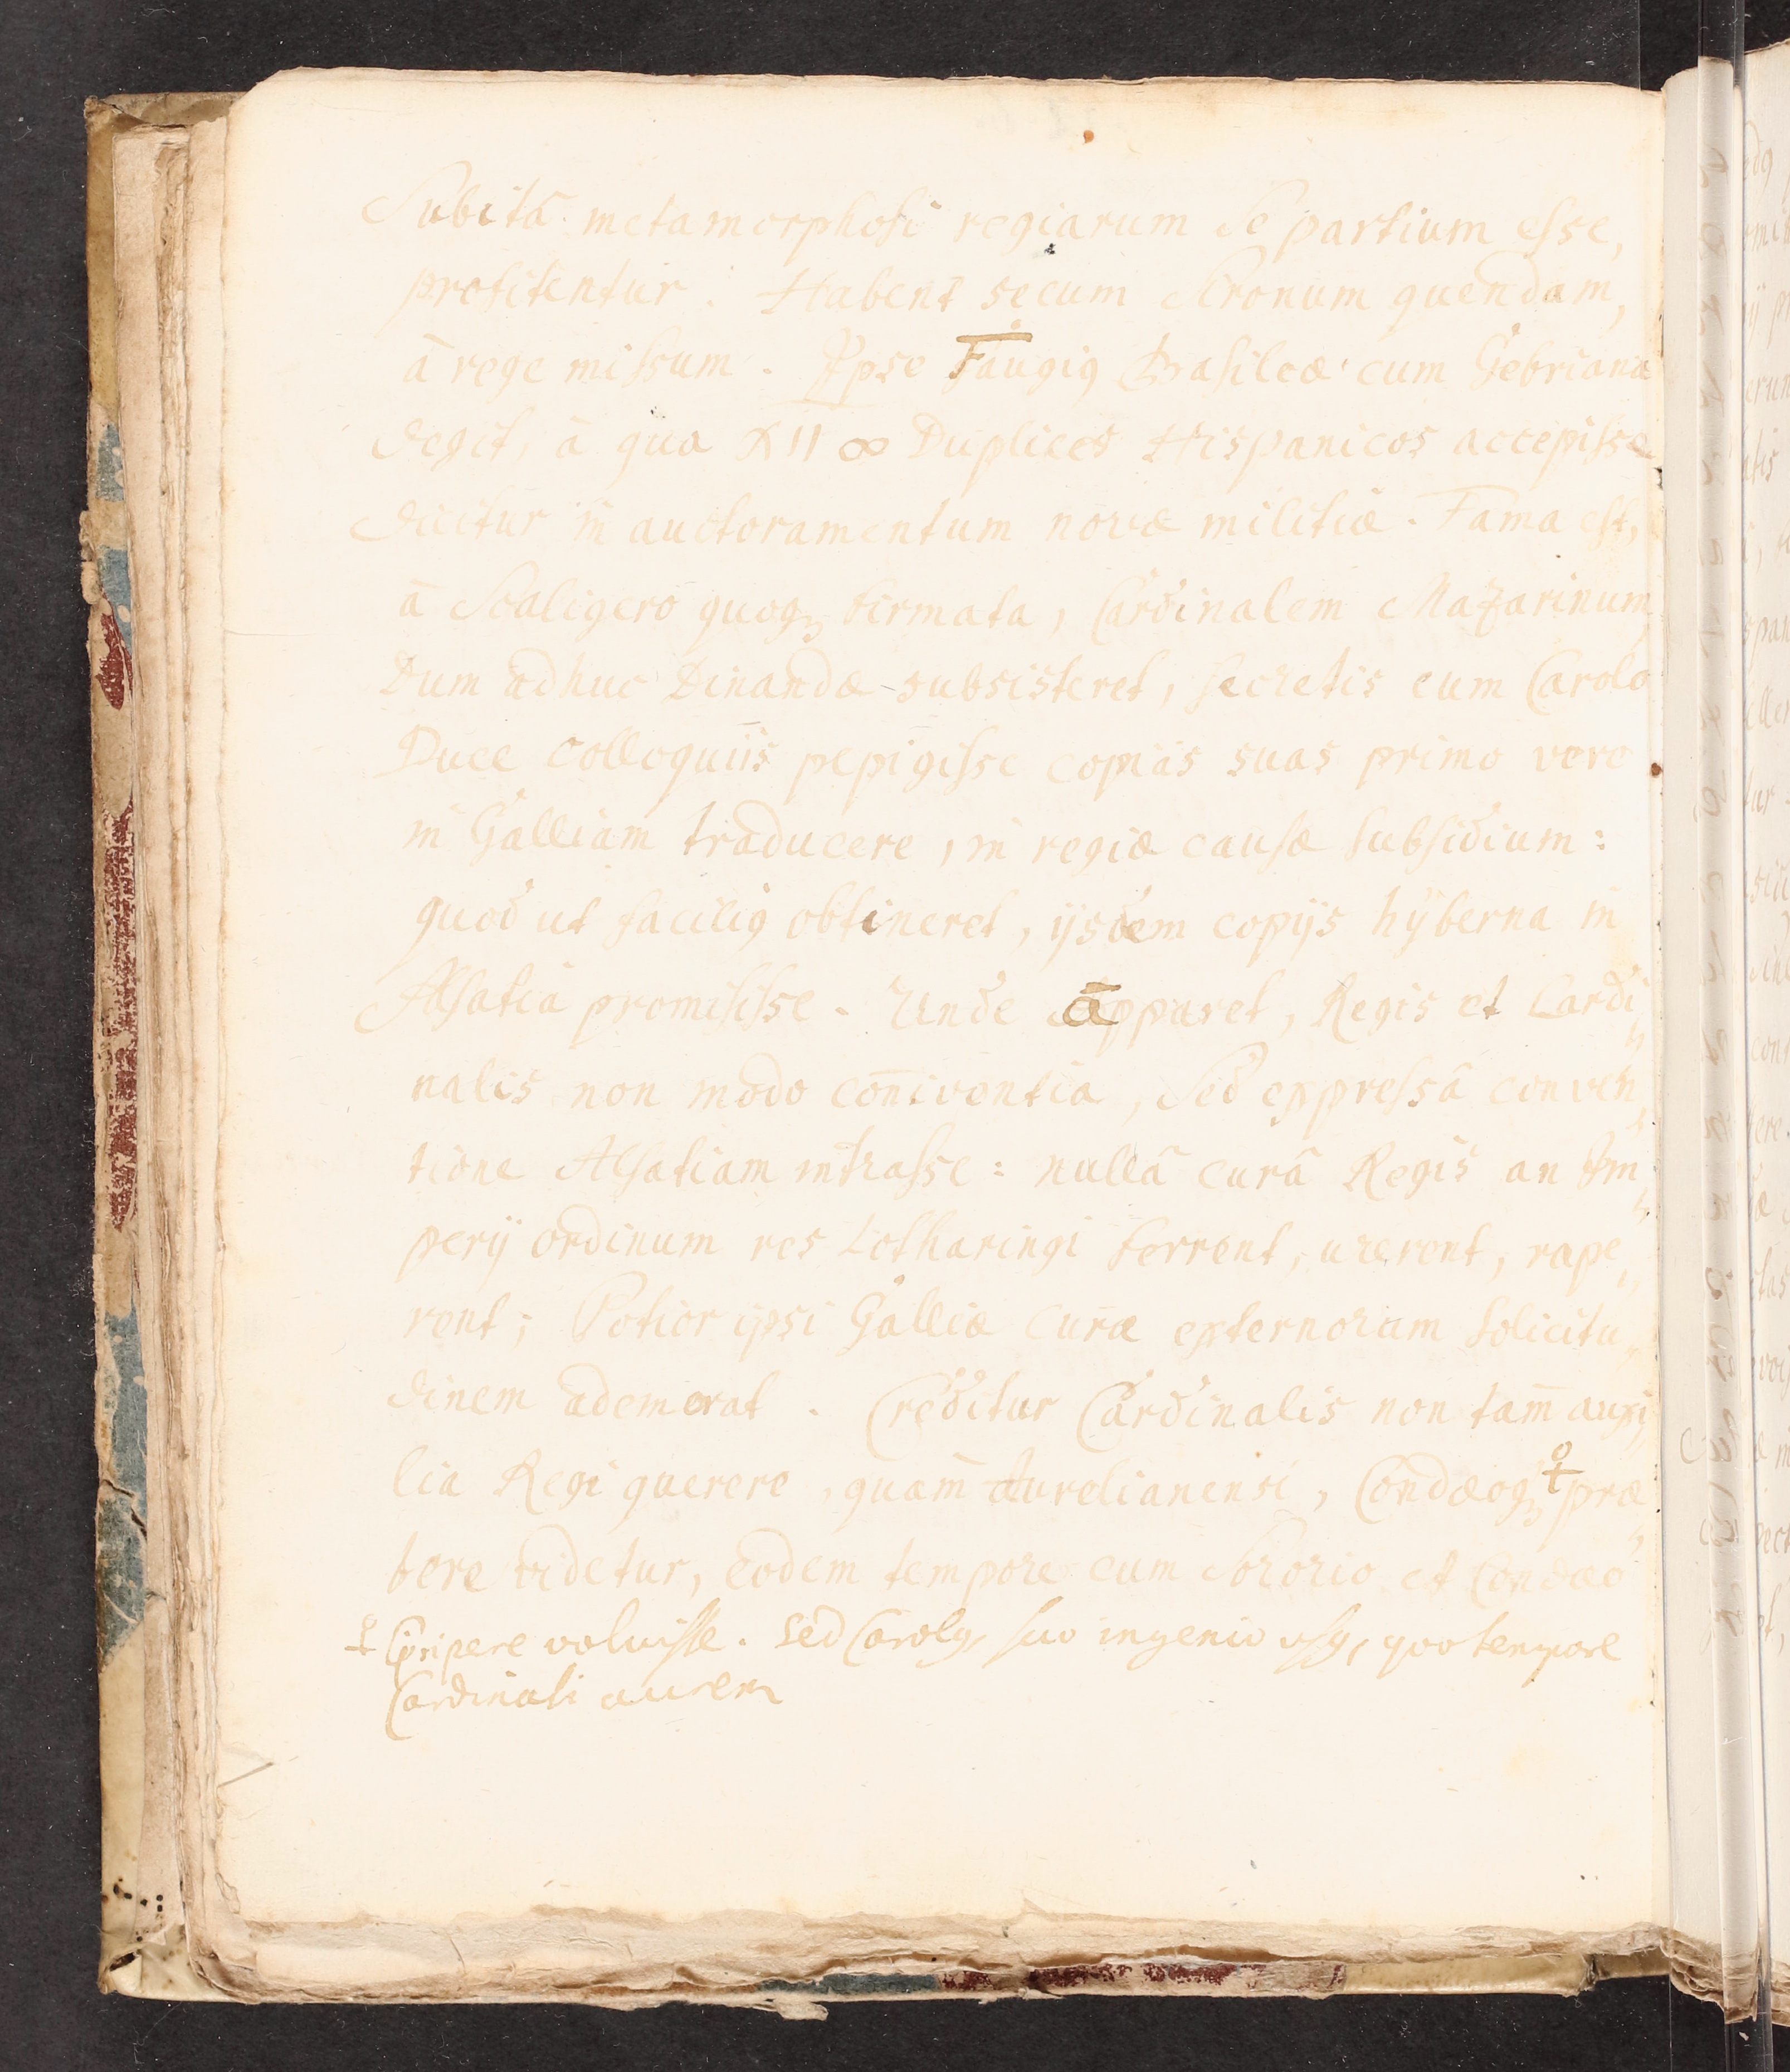 Subitâ metamorphosi regiarum se partium esse,
profitentur. Habent secum Sironum quendam,
â rege missum. Ipse Faugiꝰ Basileæ cum Gebriana
degit, â qua XII ∞ Duplices Hispanicos accepisse
dicitur in auctoramentum novæ militiæ. Fama est,
â Scaligero quoqꝫ firmata, Cardinalem Mazarinum,
Dum adhuc Dinandæ subsisteret, secretis cum Carolo
Duce colloquiis pepigisse copias suas primo vere
in Galliam traducere, in regiæ causæ subsidium:
quod ut faciliꝰ obtineret, ijsdem copijs hÿberna in
Alsatia promisisse. Unde apparet, Regis et Cardi
nalis non modo coniventia, sed expressâ conven
tione Alsatiam intrasse: nullâ curâ Regis an Im
perij ordinum res Lotharingi ferrent, urerent, rape
rent; Potior ipsi Galliæ cura externorum solicitu
dinem ademerat. Creditur Cardinalis non tam auxi
lia Regi querere, quam Aurelianensi, Condæoqꝫ ♀ præ
bere videtur, eodem tempore cum Sororio et Condæo
♀ Eripere voluisse. Sed Carolꝰ suo ingenio usꝰ, quo tempore
Cardinali aurem